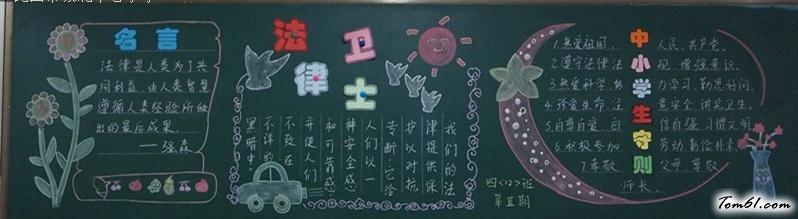 名言
法律是人类为了共
同利益，由人类智慧
遵循人类经验所做
出的最后成果。
——强森
法律卫士
我们的法
律提供保
护以对抗
专断，它给
人们以一
种安全感
和可靠感，
并使人们
不致在
不祥的
黑暗中。
四〈12〉班
第五期
中小学生守则
1.热爱祖国，人民，共产党。
2.遵守法律法规，增强意识。
3.热爱科学，努力学习，勤思好问。
4.珍爱生命，注意安全，讲究卫生。
5.自尊自爱，自信自强，习惯文明。
6.积极参加劳动，勤俭朴素。
7.孝敬父母，尊敬
师长。
Tom61.com